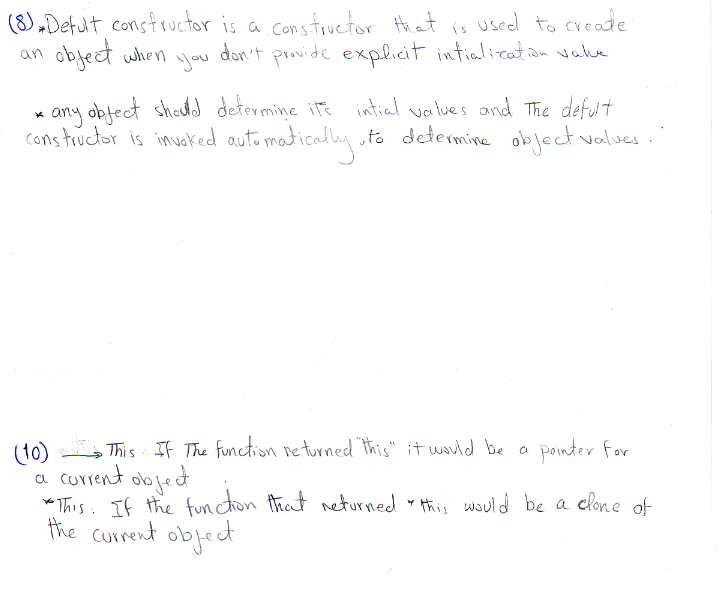 (8) *Defult constructor is a constructor that is used to create
an object when you don't provide explicit intialization value
* any object should determine its intial values and The defult
constructor is invoked automatically to determine object values.
(10) → This: If The function returned "this" it would be a pointer for
a current object
*This: If the function that returned *this would be a clone of
the current object